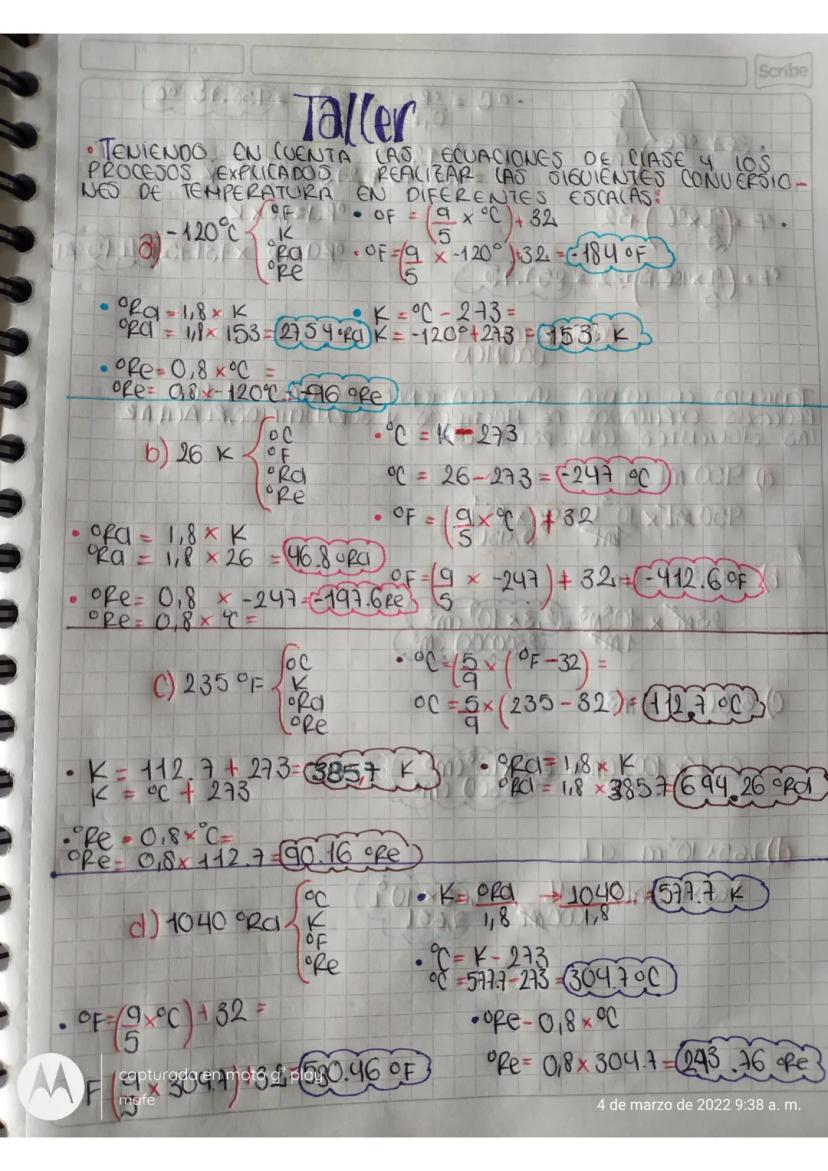 Scribe
Taller
• TENIENDO EN CUENTA LAS ECUACIONES DE CLASE Y LOS
PROCESOS EXPLICADOS REALIZAR LAS SIGUIENTES CONVERSIO-
NES DE TEMPERATURA EN DIFERENTES ESCALAS:
a) -120°C { °F K °Ra °Re
• °F = (9/5 x °C) + 32
• °F = (9/5 x -120°) + 32 = -184 °F
• °Ra = 1,8 x K
°Ra = 1,8 x 153 = 2754 °Ra
• K = °C - 273 =
K = -120° + 273 = 153 K
• °Re = 0,8 x °C =
°Re = 0,8 x -120°C = -96 °Re
b) 26 K { °C °F °Ra °Re
• °C = K - 273
°C = 26 - 273 = -247 °C
• °F = (9/5 x °C) + 32
°F = (9/5 x -247) + 32 = -412.6 °F
• °Ra = 1,8 x K
°Ra = 1,8 x 26 = 46.8 °Ra
• °Re = 0,8 x -247 = -197.6 Re
°Re = 0,8 x °C =
c) 235 °F { °C K °Ra °Re
• °C = (5/9 x (°F - 32) =
°C = 5/9 x (235 - 32) = 112.7 °C
• K = 112.7 + 273 = 385,7 K
K = °C + 273
• °Ra = 1,8 x K
°Ra = 1,8 x 3857 = 694.26 °Ra
• °Re = 0,8 x °C =
°Re = 0,8 x 112.7 = 90.16 °Re
d) 1040 °Ra { °C K °F °Re
• K = °Ra/1,8 → 1040/1,8 = 577.7 K
• °C = K - 273
°C = 577.7 - 273 = 304.7 °C
• °F = (9/5 x °C) + 32 =
F (9/5 x 304.7) + 32 = 580.46 °F
• °Re - 0,8 x °C
°Re = 0,8 x 304.7 = 243.76 °Re
capturada en moto g⁹ play
mafe
4 de marzo de 2022 9:38 a. m.